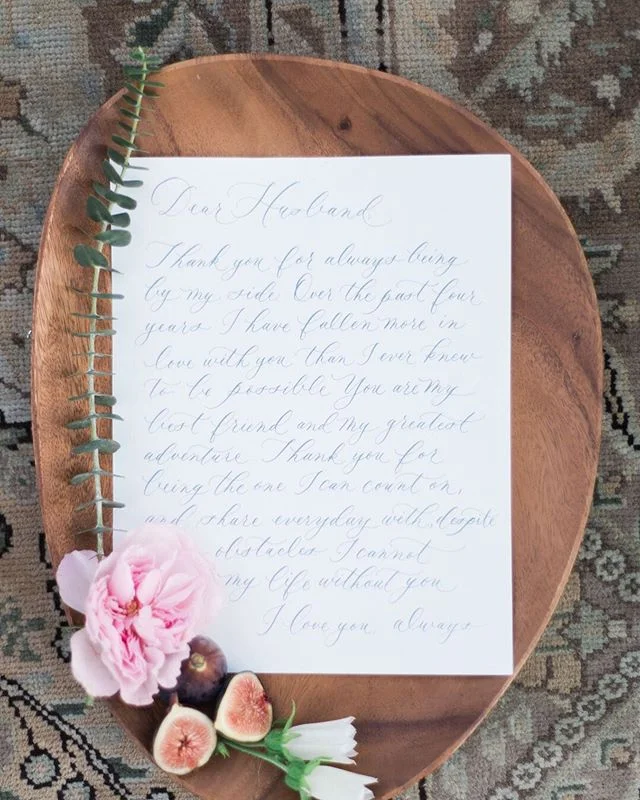 Dear Husband
Thank you for always being
by my side. Over the past four
years I have fallen more in
love with you than I ever knew
to be possible You are my
best friend and my greatest
adventure Thank you for
being the one I can count on,
and share everyday with, despite
obstacles I cannot
my life without you
I love you, always